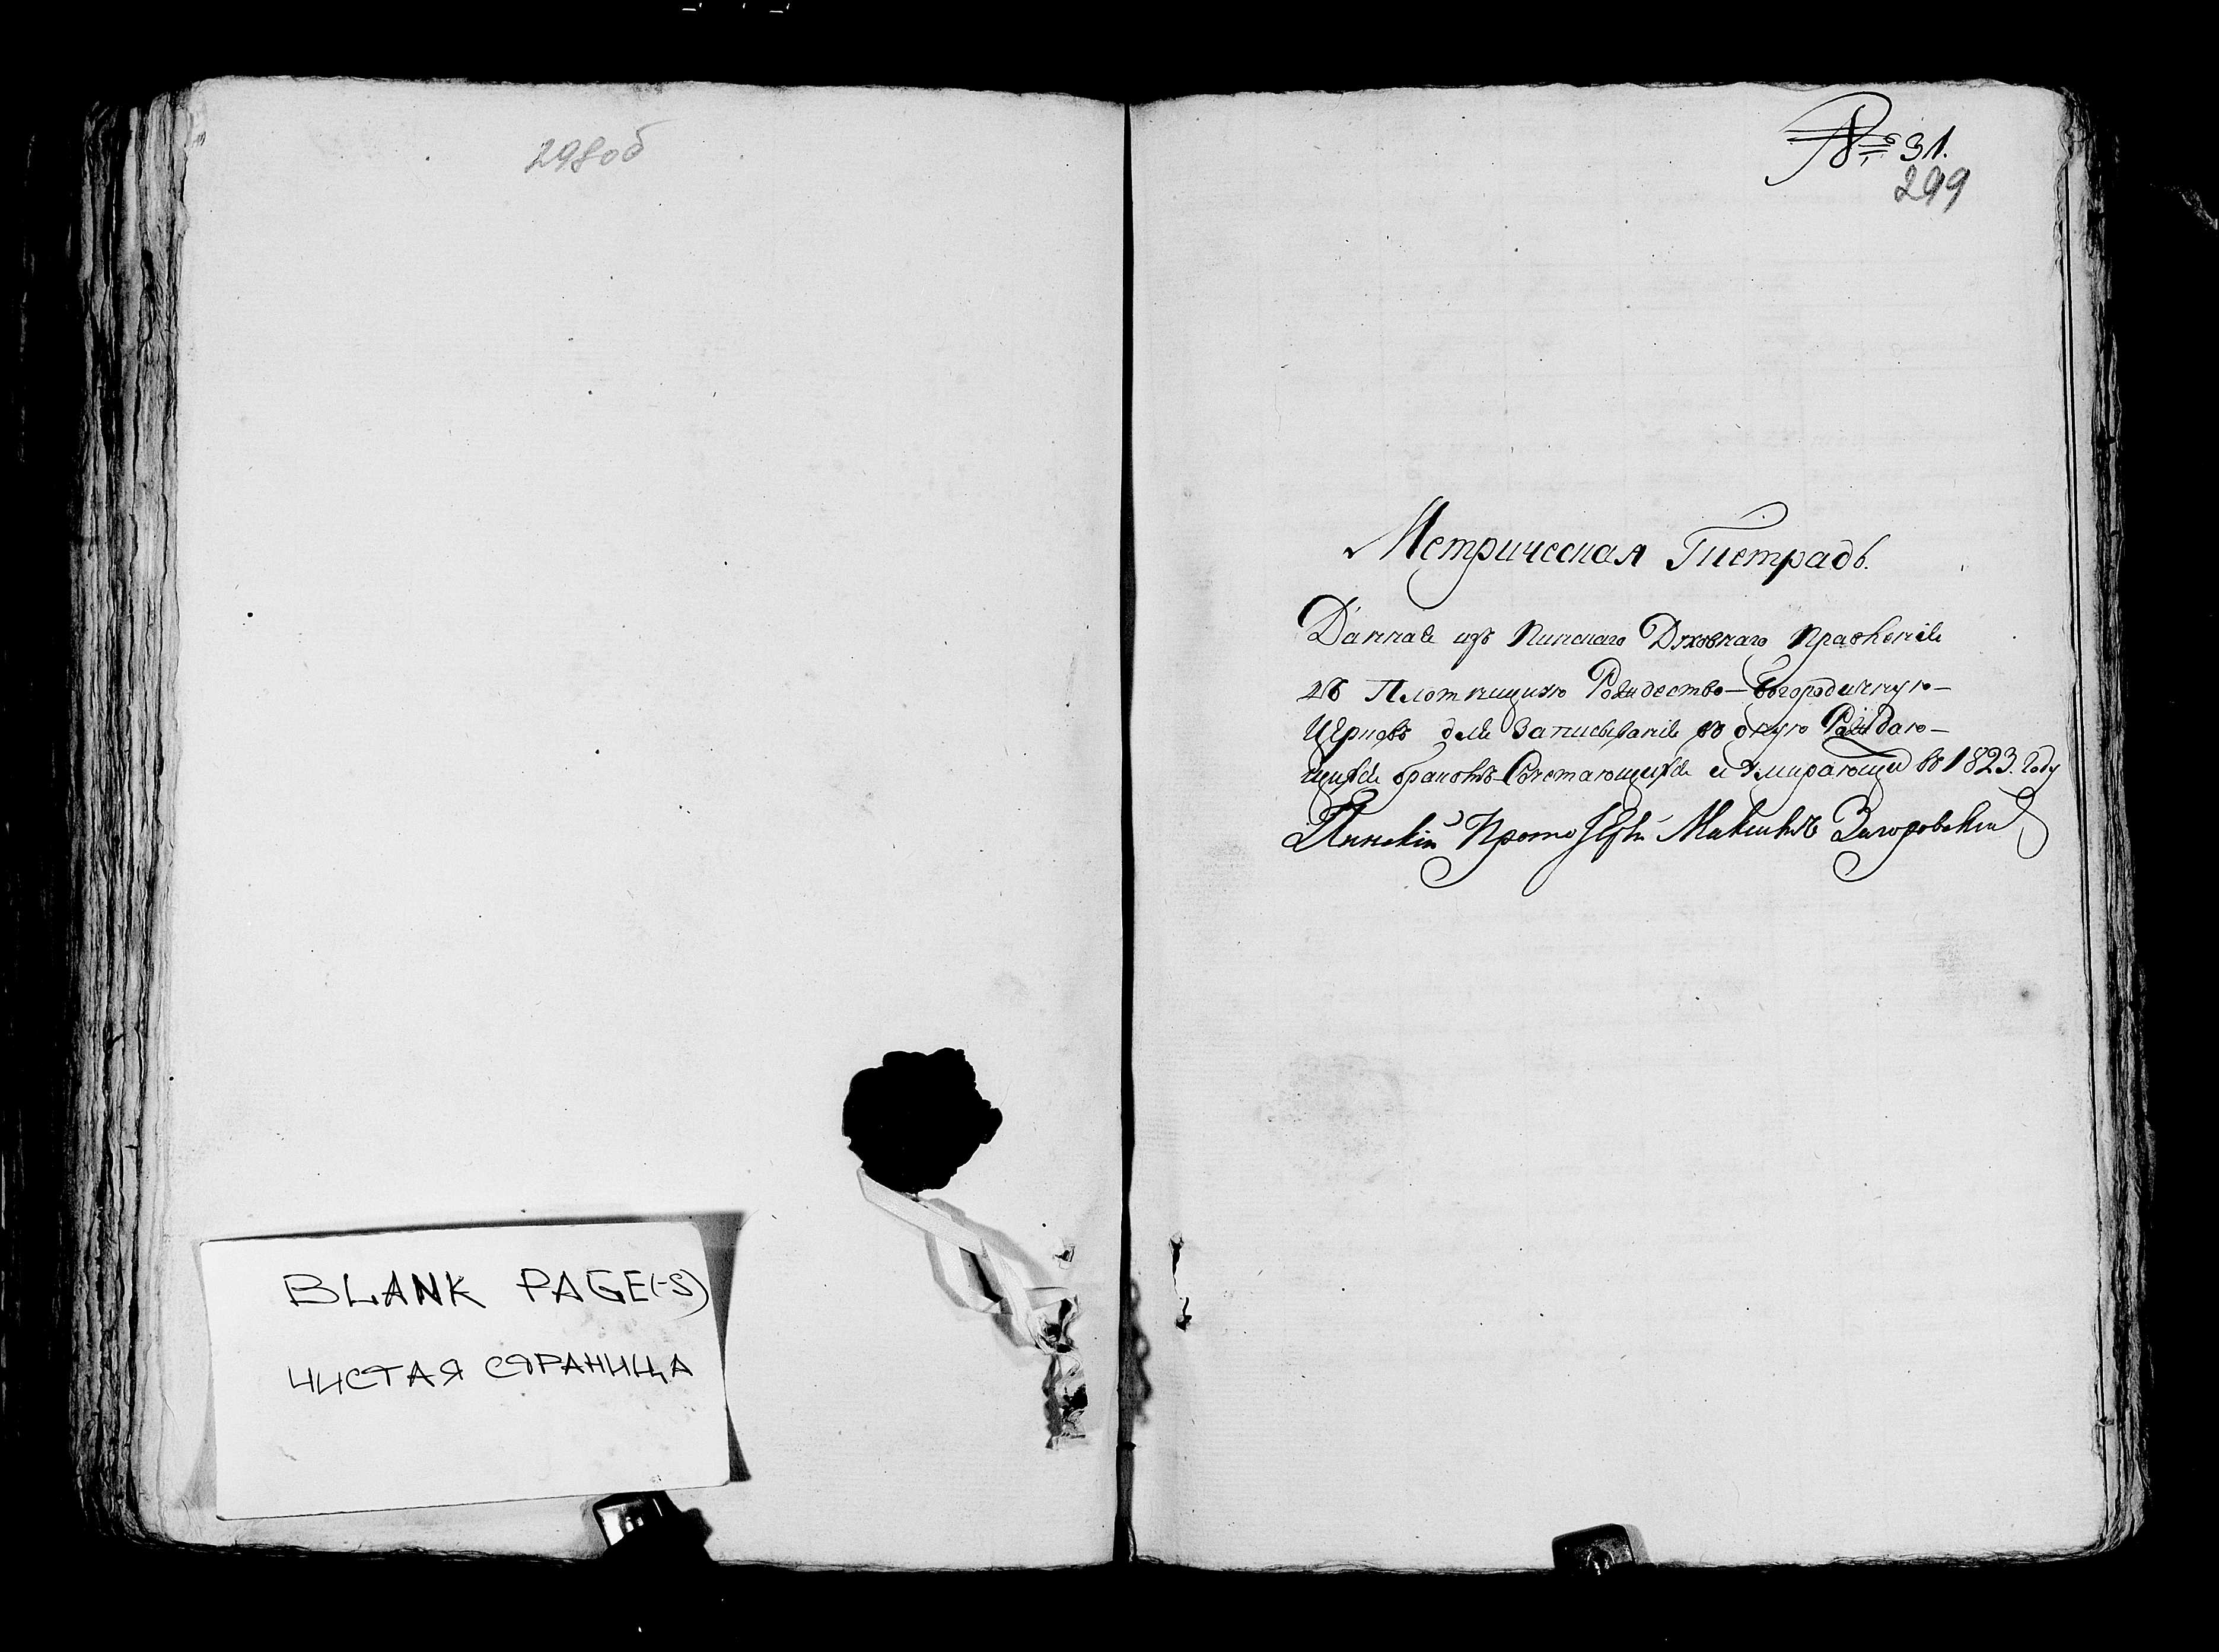 298об
BLANK PAGE(-S)
ЧИСТАЯ СТРАНИЦА
№ 31.
299
Метрическая Тетрадь.
Данная изъ Пинскаго Духовнаго Правленія
въ Плотницкую Рождество-Богородичную-
Церковь для Записыванія въ оную Раждаю-
щихся бракомъ Сочетающихся и Умирающи въ 1823. Году
Пинскій Прото Іерей Загоровскій